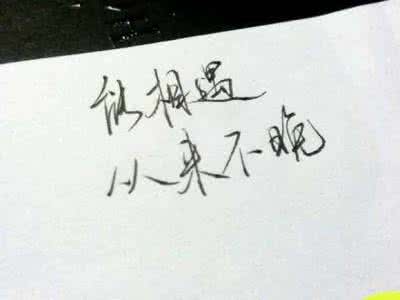 能相遇
从来不晚